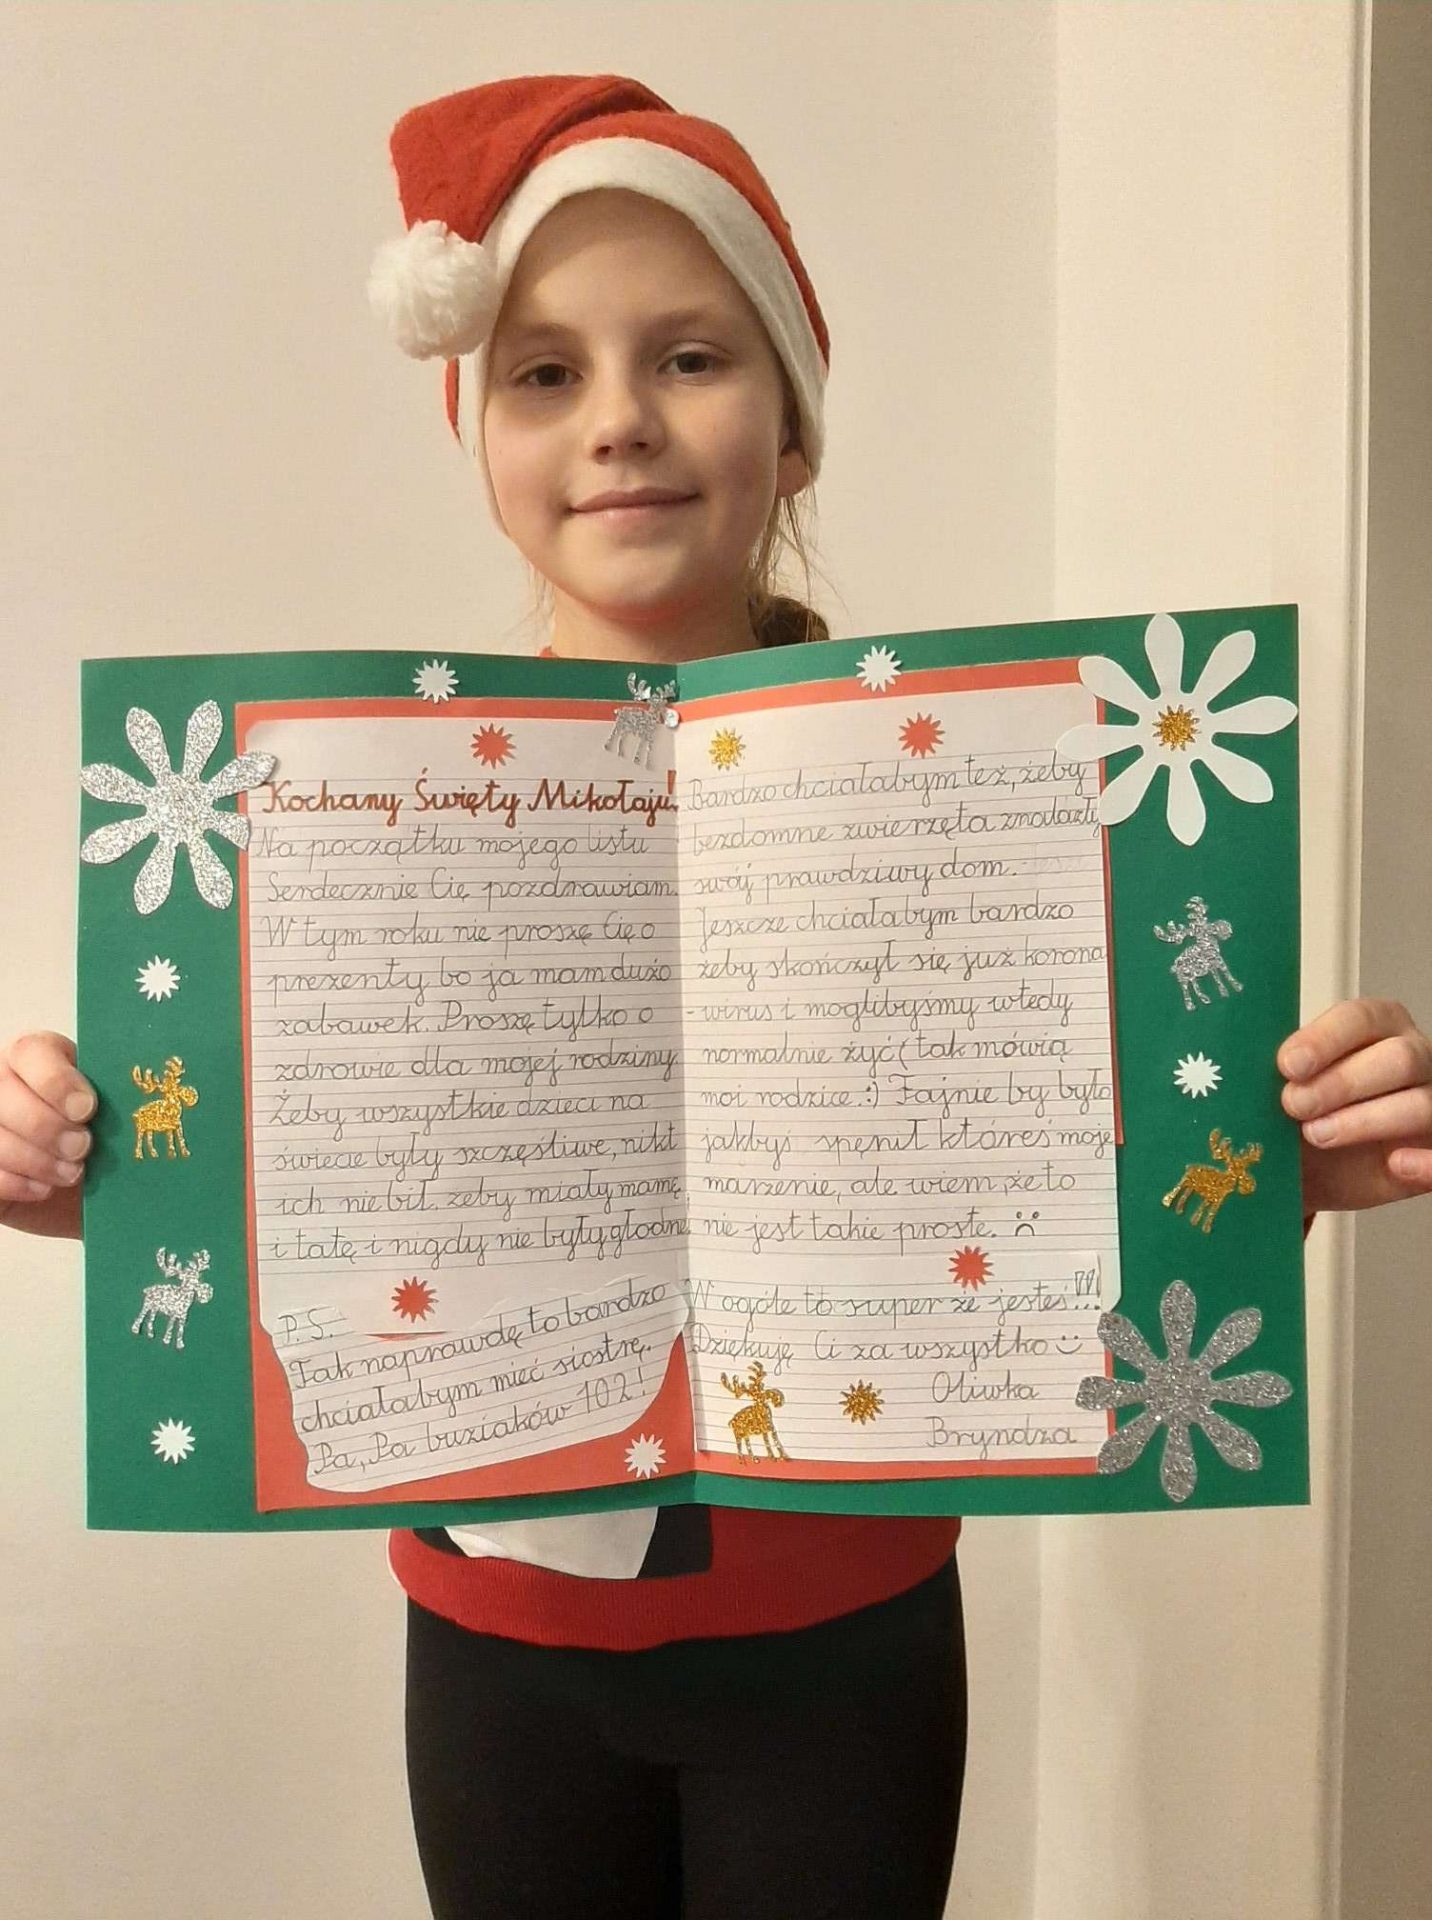 Kochany Święty Mikołaju!
Na początku mojego listu
Serdecznie Cię pozdrawiam.
W tym roku nie proszę Cię o
prezenty bo ja mam dużo
zabawek. Proszę tylko o
zdrowie dla mojej rodziny.
Żeby wszystkie dzieci na
świecie były szczęśliwe, nikt
ich nie bił, żeby miały mamę
i tatę i nigdy nie były głodne.
P.S.
Tak naprawdę to bardzo
chciałabym mieć siostrę.
Pa, Pa buziaków 102!
Bardzo chciałabym też, żeby
bezdomne zwierzęta znalazły
swój prawdziwy dom.
Jeszcze chciałabym bardzo
żeby skończył się już korona
-wirus i moglibyśmy wtedy
normalnie żyć (tak mówią
moi rodzice :) Fajnie by było
jakbyś spęnił któreś moje
marzenie, ale wiem, że to
nie jest takie proste. ☹
W ogóle to super że jesteś!!!
Dziękuję Ci za wszystko ☺
Oliwka
Bryndza